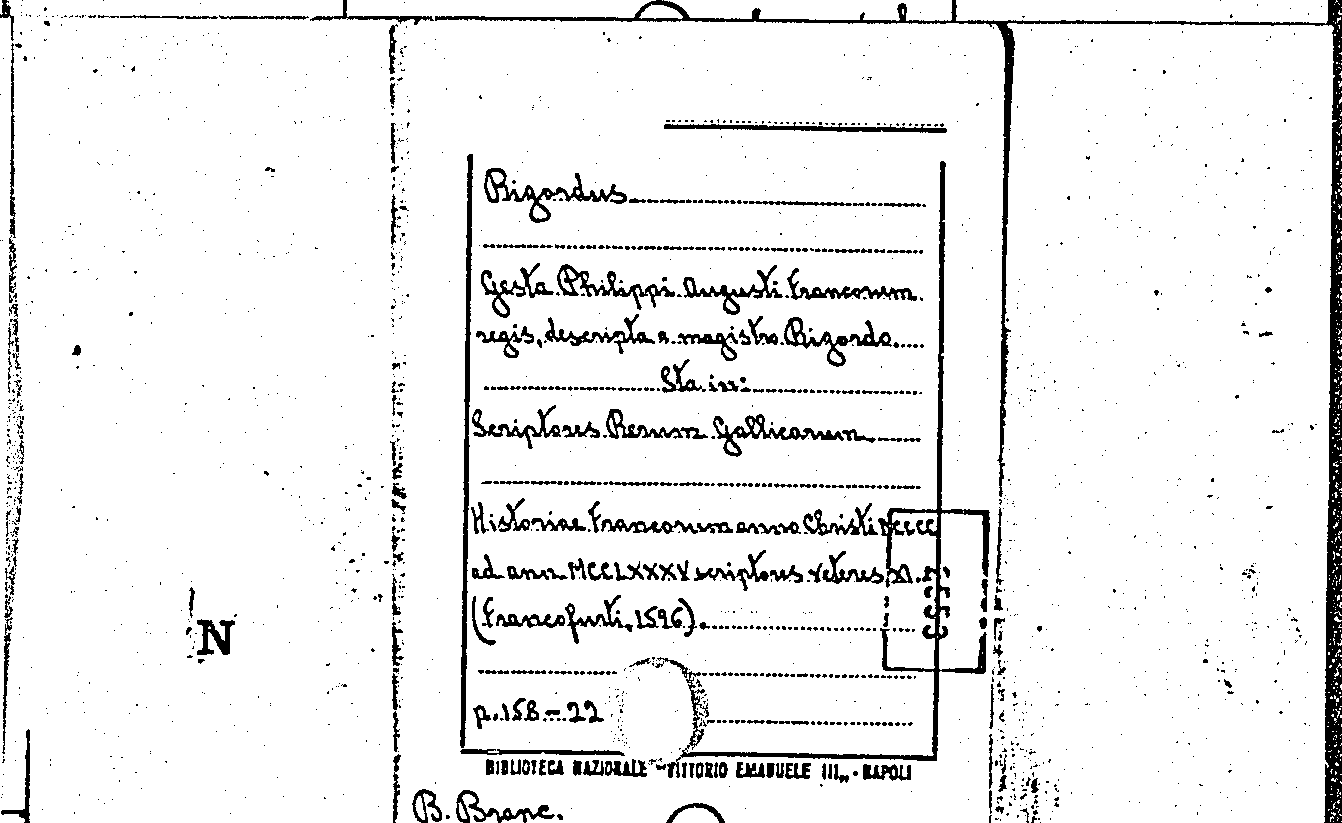 Rigordus
Gesta Philippi Augusti Francorum
regis, descripta a magistro Rigordo.
Sta in:
Scriptores Rerum Gallicarum
Historiae Francorum anno Christi DCCCC
ad ann. MCCLXXXV scriptores veteres XI.
(Francofurti, 1596).
N
p. 158-22
BIBLIOTECA NAZIONALE "VITTORIO EMANUELE III„ - NAPOLI
B. Branc.